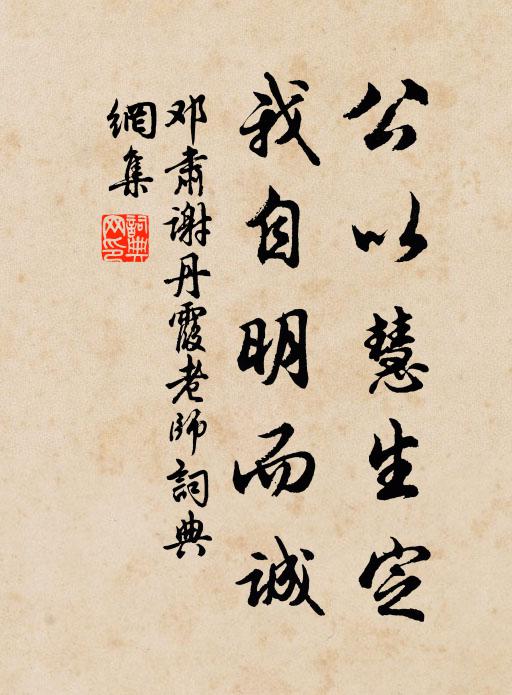 公以慧生定
我自明而诚
邓肃谢丹霞老师詞典
網集
詞典网印